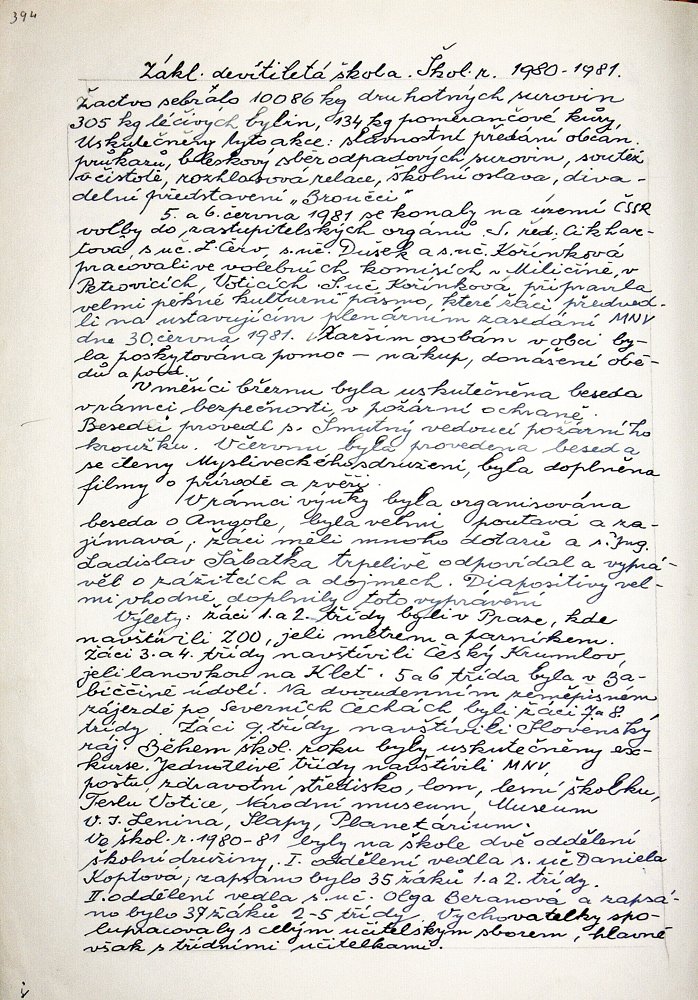 394
Zákl. devítiletá škola. Škol. r. 1980-1981.
Žactvo sebralo 10086 kg druhotných surovin
305 kg léčivých bylin, 134 kg pomerančové kůry,
Uskutečněny tyto akce: slavnostní předání občan.
průkazů, bleskový sběr odpadových surovin, soutěž
o čistotě, rozhlasová relace, školní oslava, diva-
delní představení „Broučci“
5. a 6. června 1981 se konaly na území ČSSR
volby do zastupitelských orgánů. S. řed. Cikhar-
tová, s. uč. L. Červ, s. uč. Dušek a s. uč. Kořínková
pracovali ve volebních komisích v Miličíně, v
Petrovicích, Voticích. S. uč. Kořínková připravila
velmi pěkné kulturní pásmo, které žáci předved-
li na ustavujícím plenárním zasedání MNV
dne 30. června 1981. Starším osobám v obci by-
la poskytována pomoc – nákup, donášení obě-
dů a pod.
V měsíci březnu byla uskutečněna beseda
v rámci bezpečnosti v požární ochraně.
Besedu provedl s. Smutný vedoucí požárního
kroužku. V červnu byla provedena beseda
se členy Mysliveckého sdružení, byla doplněna
filmy o přírodě a zvěři.
V rámci výuky byla organisována
beseda o Angole, byla velmi poutavá a za-
jímavá, žáci měli mnoho dotazů a s. Ing.
Ladislav Sábatka trpělivě odpovídal a vyprá-
věl o zážitcích a dojmech. Diapositivy vel-
mi vhodně doplnily toto vyprávění
Výlety: žáci 1. a 2. třídy byli v Praze, kde
navštívili ZOO, jeli metrem a parníkem.
Žáci 3. a 4. třídy navštívili Český Krumlov,
jeli lanovkou na Kleť. 5 a 6 třída byla v Ba-
biččině údolí. Na dvoudenním zeměpisném
zájezdě po Severních Čechách byli žáci 7. a 8.
třídy. Žáci 9. třídy navštívili Slovenský
ráj. Během škol. roku byly uskutečněny ex-
kurse. Jednotlivé třídy navštívili MNV,
poštu, zdravotní středisko, lom, lesní školku,
Teslu Votice, Národní museum, Museum
V. I. Lenina, Slapy, Planetárium.
Ve škol. r. 1980-81 byly na škole dvě oddělení
školní družiny. I. oddělení vedla s. uč Daniela
Koptová, zapsáno bylo 35 žáků 1. a 2. třídy.
II. oddělení vedla s. uč. Olga Beranová a zapsá-
no bylo 37 žáků 2-5 třídy. Vychovatelky spo-
lupracovaly s celým učitelským sborem, hlavně
však s třídními učitelkami.